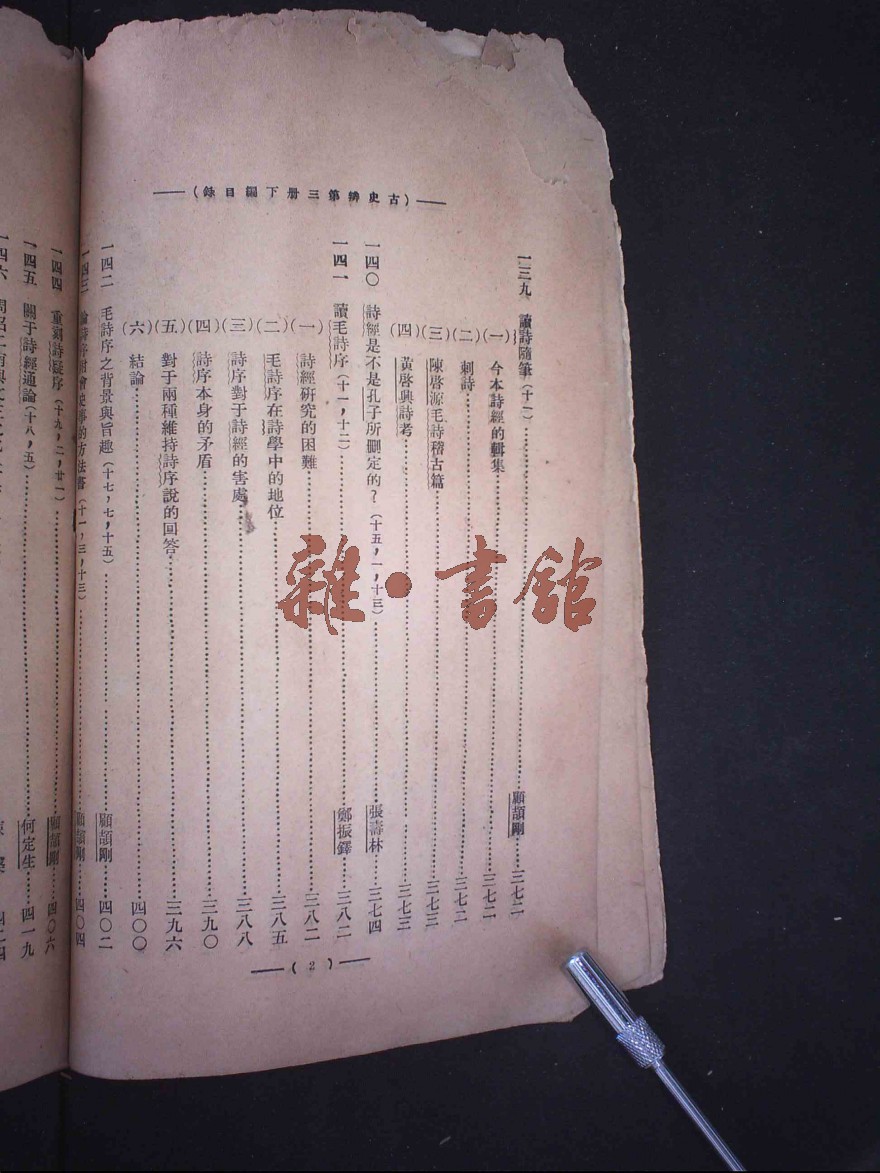 （古史辨第三册下編目錄）
一三九 讀詩隨筆（十二）……顧頡剛……三七二
（一）今本詩經的輯集……三七二
（二）刺詩……三七二
（三）陳啓源毛詩稽古篇……三七三
（四）黃啓興詩考……三七三
一四〇 詩經是不是孔子所刪定的？（十五，一，十三）……張壽林……三七四
一四一 讀毛詩序（十一，十二）……鄭振鐸……三八二
（一）詩經研究的困難……三八二
（二）毛詩序在詩學中的地位……三八五
（三）詩序對于詩經的害處……三八八
（四）詩序本身的矛盾……三九〇
（五）對于兩種維持詩序說的回答……三九六
（六）結論……四〇〇
一四二 毛詩序之背景與旨趣（十七，七，十五）……顧頡剛……四〇二
一四三 論詩序附會史事的方法書（十一，三，十三）……顧頡剛……四〇四
一四四 重刻詩疑序（十九，二，廿一）……顧頡剛……四〇六
一四五 關于詩經通論（十八，五）……何定生……四一九
一四六
（2）
雜·書館